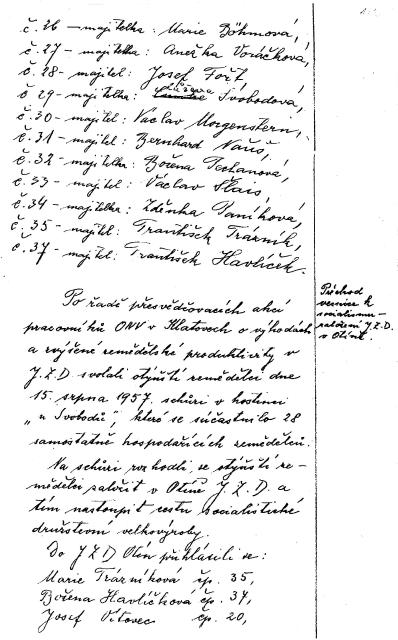 č. 26 – majitelka: Marie Böhmová,
č. 27 – majitelka: Anežka Voráčková,
č. 28 – majitel: Josef Fořt,
č. 29 – majitelka: Svobodová,
č. 30 – majitel: Václav Morgenstern,
č. 31 – majitel: Bernhard
č. 32 – majitelka: Božena
č. 33 – majitel: Václav Slais,
č. 34 – majitelka: Zdeňka Paníková,
č. 35 – majitel: František Trázník,
č. 37 – majitel: František Havlíček.
Po řadě přesvědčovacích akcí
pracovníků ONV v Klatovech o výhodách
a zvýšené zemědělské produktivity v
J.Z.D svolali otýnští zemědělci dne
15. srpna 1957. schůzi v hostinci
„u Svobodů“, které se súčastnilo 28
samostatně hospodařících zemědělců.
Na schůzi rozhodli, se otýnští ze-
mědělci založit v Otíně J.Z.D. a
tím nastoupit cestu socialistické
družstevní velkovýroby.
Do J.Z.D Otín přihlásili se:
Marie Trázníková čp. 35,
Božena Havlíčková čp. 37,
Josef Vítovec čp. 20,
Příchod
vesnice k
socialismu –
založení J.Z.D.
v Otíně.